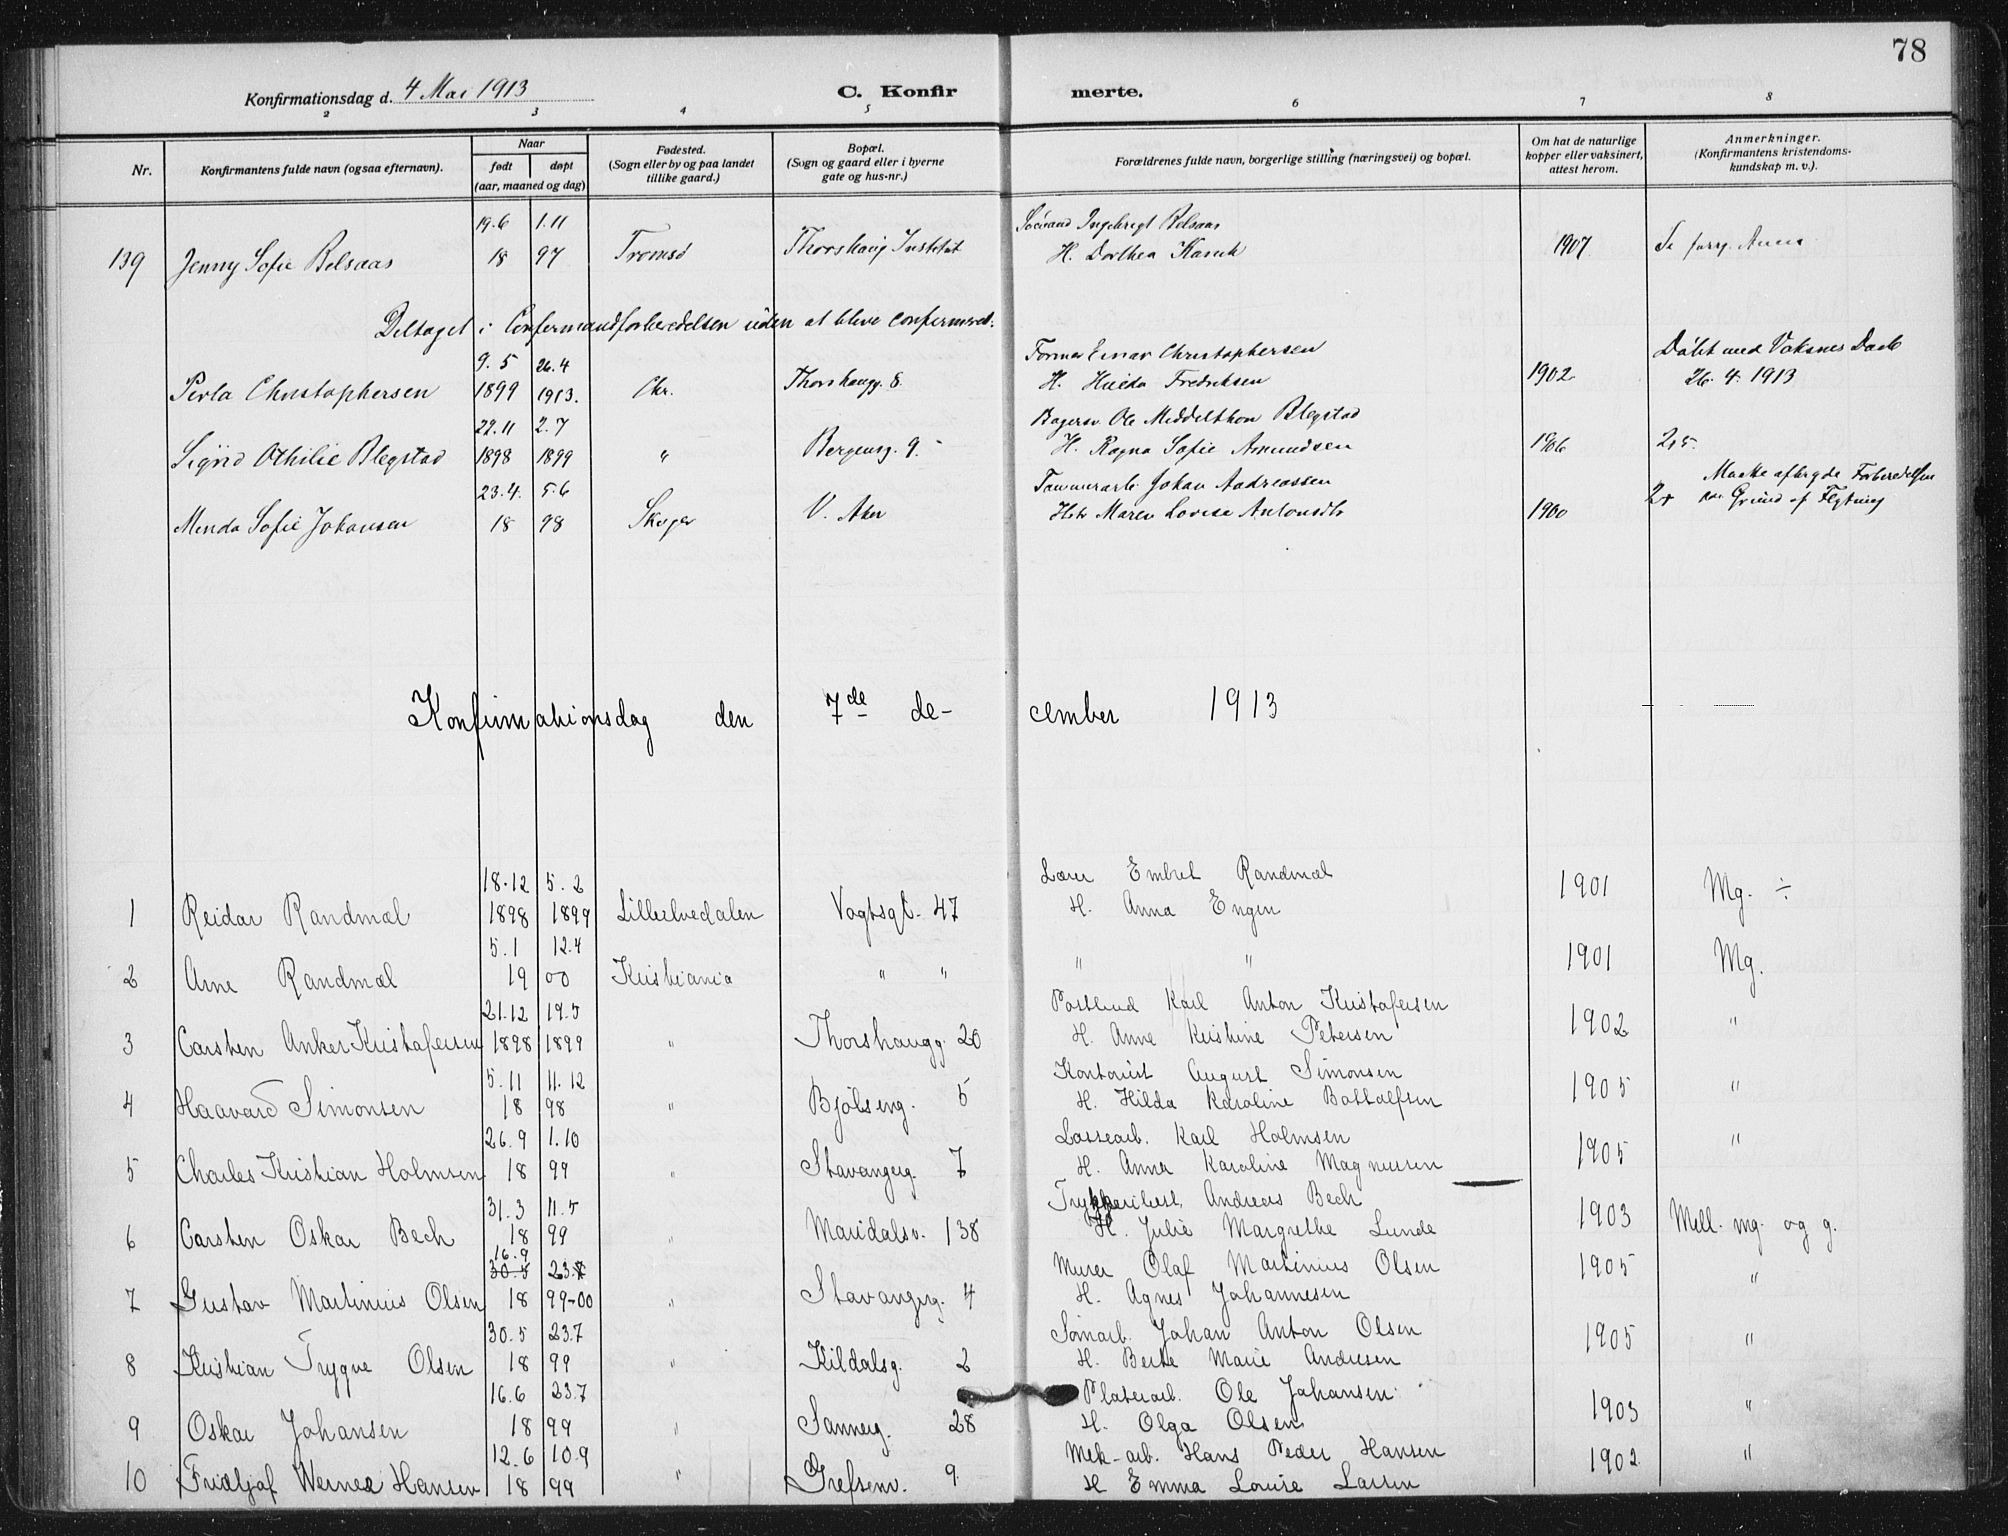 78
Konfirmationsdag d. 4 Mai 1913 C. Konfirmerte.
2 3 4 5 6 7 8
Nr. Konfirmantens fulde navn (ogsaa efternavn). Naar født døpt (aar, maaned og dag) Fødested. (Sogn eller by og paa landet tillike gaard.) Bopæl. (Sogn og gaard eller i byerne gate og hus-nr.) Forældrenes fulde navn, borgerlige stilling (næringsvei) og bopæl. Om hat de naturlige kopper eller vaksinert, attest herom. Anmerkninger. (Konfirmantens kristendomskundskap m. v.).
19.6 1.11 Ingebregt Belsaas
139 Jenny Sofie Belsaas 18 97 Tromsø Thorshaug Institut H. Dorthea 1907
Deltaget i Confirmandforberedelsen uden at blive confirmeret.
9.5 26.4 Former Einar Christophersen Døbt med Voksnes Daab
Perla Christophersen 1899 1913. Chr. Thorshaugg. 8 H. Hulda Fredriksen 1902 26.4.1913
22.11 2.7 Bagersv. Ole Middelthon Blegstad
Sigrid Othilie Blegstad 1898 1899 " Bergensg. 9. H. Ragna Sofie Amundsen 1906 2,5.
23.4. 5.6 Tømmerarb. Johan Andreassen Maatte afbryde Forberedelsen
Minda Sofie Johansen 18 98 Skoger V. Aker Hstr Maren Lovise Antonsdtr 1900 2+ paa Grund af Flytning
Konfirmationsdag den 7de december 1913
18.12 5.2 Lærer Embret Randmæl
1 Reidar Randmæl 1898 1899 Lilleelvedalen Vogtsgt. 47 H. Anna Engen 1901 Mg. ÷
5.1 12.4
2 Arne Randmæl 19 00 Kristiania " " " " 1901 Mg.
21.12 19.3 Postbud Karl Anton Kristofersen
3 Carsten Anker Kristofersen 1898 1899 " Thorshaugg. 20 H. Anne Kristine Petersen 1902 "
5.11 11.12 Kontorist August Simonsen
4 Haavard Simonsen 18 98 " Bjølseng. 5 H. Hilda Karoline Bottolfsen 1905 "
26.9 1.10 Lossearb. Karl Holmsen
5 Charles Kristian Holmsen 18 99 " Stavangerg. 7 H. Anna Karoline Magnussen 1905 "
31.3 11.5 Andreas Bech
6 Carsten Oskar Bech 18 99 " Maridalsv. 138 H. Julie Margrethe Lunde 1903 Mell. mg. og g.
16.9
30.5 23.7 Murer Olaf Martinius Olsen
7 Gustav Martinius Olsen 18 99-00 " Stavangerg. 4 H. Agnes Johannesen 1905 "
30.5 23.7 Johan Anton Olsen
8 Kristian Trygve Olsen 18 99 " Kildalsg. 2 H. Berte Marie Andresen 1905 "
16.6 23.7 Platearb. Ole Johansen
9 Oskar Johansen 18 99 " Sannerg. 28 H. Olga Olsen 1903 "
12.6 10.9 Mek-arb. Hans Peder Hansen
10 Fridtjof Werner Hansen 18 99 " Grefsenv. 9 H Emma Louise Larsen 1902 "